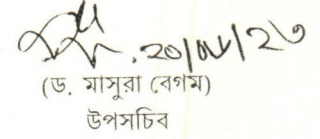 ২০/০৮/২৩
(ড. মাসুরা বেগম)
উপসচিব